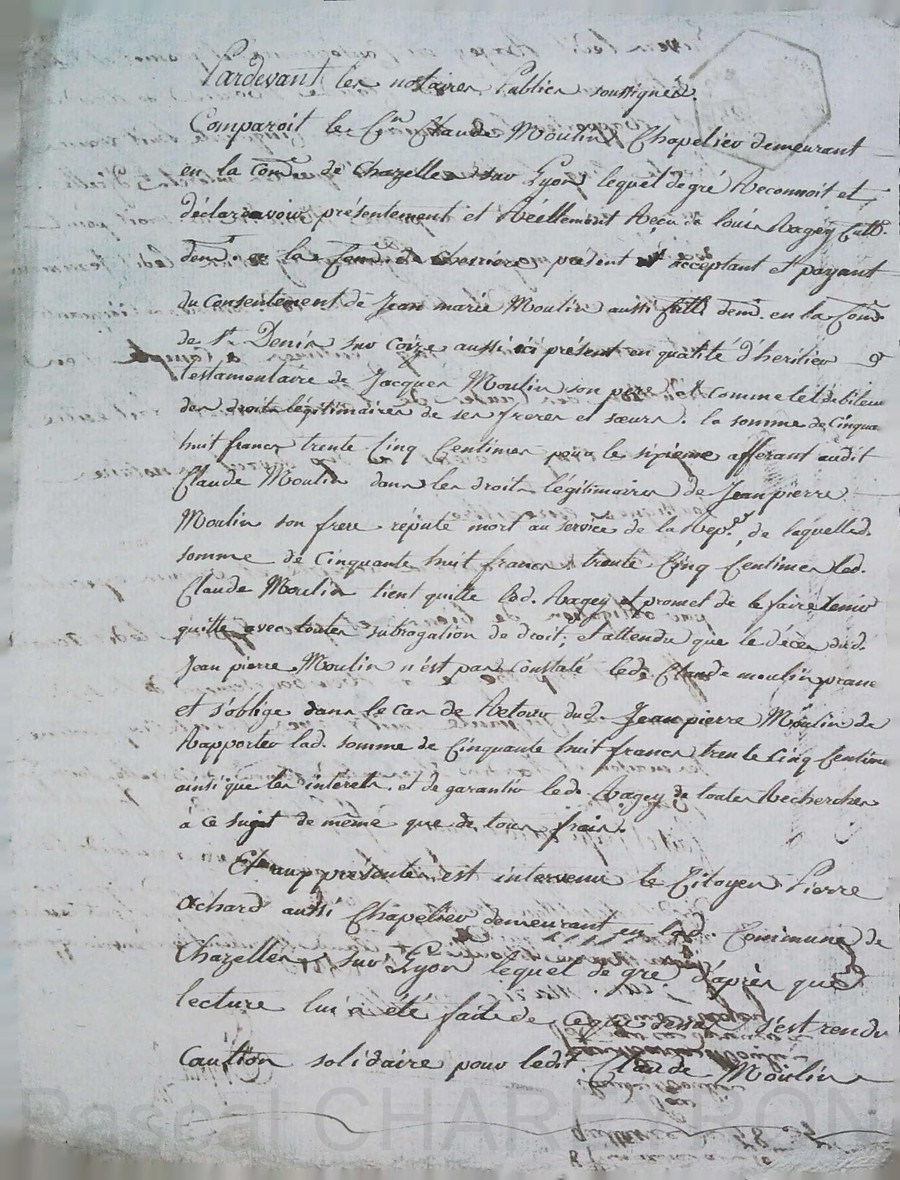 Pardevant les notaires Publics soussignés.
Comparoit le Cyn Claude Moulin Chapelier demeurant
en la Come de Chazelles sur Lyon lequel de gré Reconnoit et
déclare avoir présentement et Réellement Reçu de louis Ragey Cultr.
demt. en la Come de cherrière présent et acceptant et payant
du Consentement de Jean marie Moulin aussi Cultr demt. en la Come
de St. Denis sur Coize aussi ici présent en qualité d'heritier
testamentaire de Jacques Moulin son père et comme tel débiteur
des droits légitimaires de ses freres et sœurs. la somme de Cinqua
huit francs trente Cinq Centimes pour le sixieme afferant audit
Claude Moulin dans les droits légitimaires de Jean pierre
Moulin son frere réputé mort au service de la Rep.que, de laquelle d.
somme de Cinquante huit francs trente Cinq Centimes led.
Claude Moulin tient quitte led. Ragey et promet de le faire tenir
quitte avec toutes subrogation de droit; et attendu que le décès dud.
Jean pierre Moulin n'est pas Constaté led. Claude moulin prome
et s'oblige dans le cas de Retour dud. Jean pierre Moulin de
Rapporter lad. somme de Cinquante huit francs trente Cinq Centime
ainsi que les interets. et de garantir led. Ragey de toutes Recherches
à ce sujet de même que de tous frais.
Et aux présentes est intervenu le Citoyen Pierre
Achard aussi Chapelier demeurant en lad. Commune de
Chazelles sur Lyon lequel de gré d'après que
lecture lui a été faite de ce que dessus s'est rendu
Caution solidaire pour ledit Claude Moulin
Pascal CHAREYRON